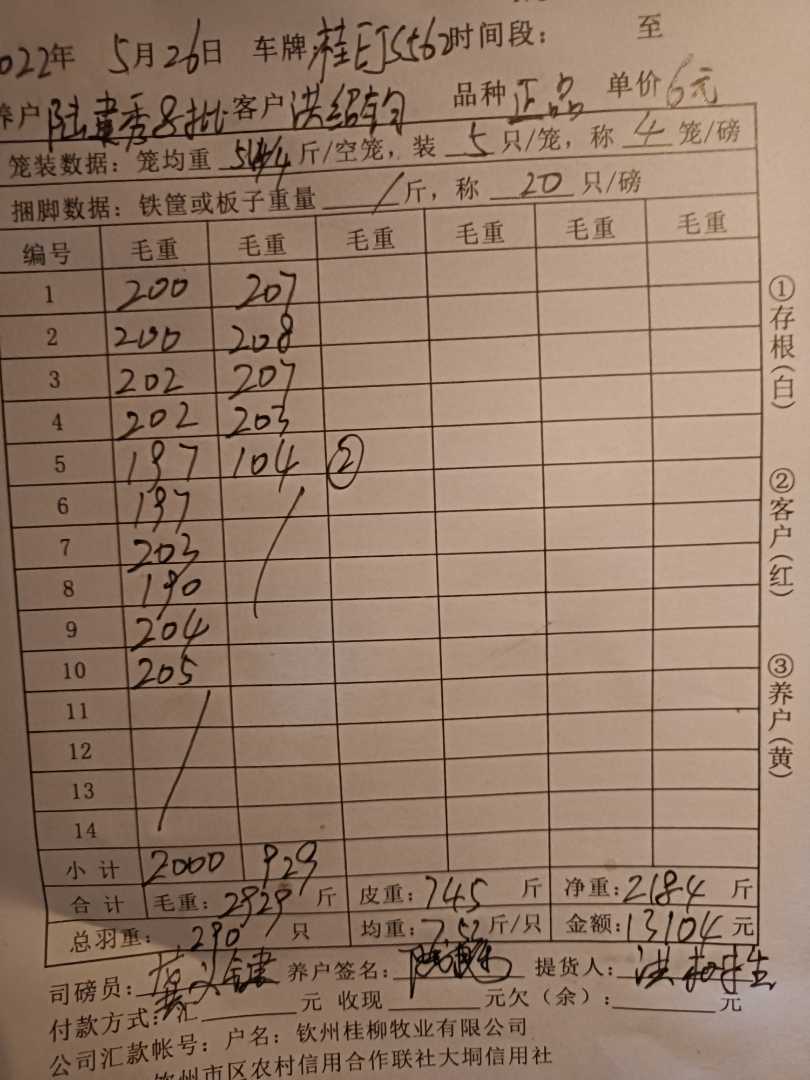 022年 5月26日 车牌:桂EJS562 时间段: 至
养户 陆建秀8批 客户 洪绍钧 品种 正品 单价 6元
笼装数据: 笼均重 斤/空笼, 装 5 只/笼, 称 4 笼/磅
捆脚数据: 铁筐或板子重量 / 斤, 称 20 只/磅
编号 毛重 毛重 毛重 毛重 毛重 毛重
1 200 207
2 200 208
3 202 207
4 202 203
5 197 104 ②
6 197
7 203
8 190
9 204
10 205
11
12
13
14
小计 2000 929
合计 毛重: 2929 斤 皮重: 745 斤 净重: 2184 斤
总羽重: 290 只 均重: 斤/只 金额: 13104 元
司磅员: 养户签名: 提货人: 洪
付款方式: 汇 元 收现 元欠(余): 元
公司汇款帐号: 户名: 钦州桂柳牧业有限公司
钦州市区农村信用合作联社大垌信用社
①存根(白)
②客户(红)
③养户(黄)